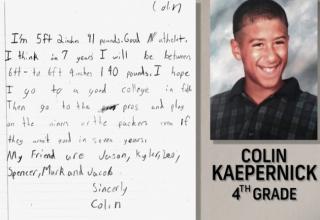 Colin
I'm 5ft 2 inches 91 pounds. Good athelet.
I think in 7 years I will be between
6ft - to 6ft 4 inches 140 pounds. I hope
I go to a good college in
Then go to the pros and play
on the niners or the packers even if
they aren't good in seven years.
My Friend are Jason, Kyler, Leo,
Spencer, Mark and Jacob.
Sincerly
Colin
COLIN
KAEPERNICK
4TH GRADE